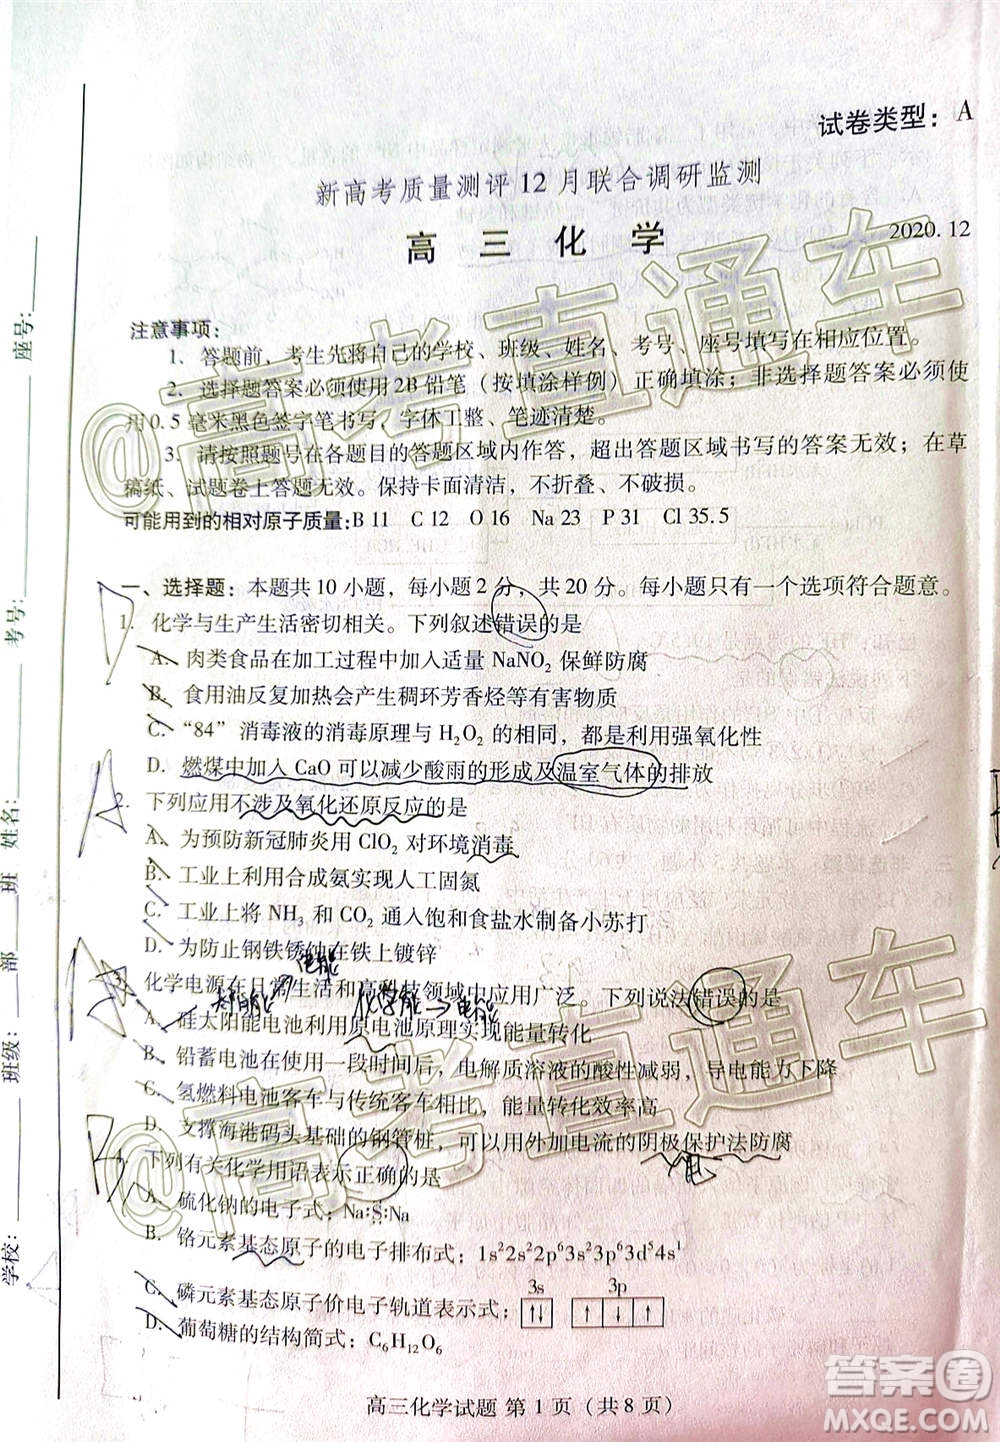 试卷类型：A
新高考质量测评12月联合调研监测
高 三 化 学
2020.12
注意事项：
1. 答题前，考生先将自己的学校、班级、姓名、考号、座号填写在相应位置。
2. 选择题答案必须使用2B铅笔（按填涂样例）正确填涂；非选择题答案必须使
用0.5毫米黑色签字笔书写，字体工整、笔迹清楚。
3. 请按照题号在各题目的答题区域内作答，超出答题区域书写的答案无效；在草
稿纸、试题卷上答题无效。保持卡面清洁，不折叠、不破损。
可能用到的相对原子质量：B 11 C 12 O 16 Na 23 P 31 Cl 35.5
一、选择题：本题共10小题，每小题2分，共20分。每小题只有一个选项符合题意。
1. 化学与生产生活密切相关。下列叙述错误的是
A. 肉类食品在加工过程中加入适量NaNO₂保鲜防腐
B. 食用油反复加热会产生稠环芳香烃等有害物质
C. “84”消毒液的消毒原理与H₂O₂的相同，都是利用强氧化性
D. 燃煤中加入CaO可以减少酸雨的形成及温室气体的排放
2. 下列应用不涉及氧化还原反应的是
A. 为预防新冠肺炎用ClO₂对环境消毒
B. 工业上利用合成氨实现人工固氮
C. 工业上将NH₃和CO₂通入饱和食盐水制备小苏打
D. 为防止钢铁锈蚀在铁上镀锌
电能
3. 化学电源在日常生活和高科技领域中应用广泛。下列说法错误的是
太阳能 化学能→电能
A. 硅太阳能电池利用原电池原理实现能量转化
B. 铅蓄电池在使用一段时间后，电解质溶液的酸性减弱，导电能力下降
C. 氢燃料电池客车与传统客车相比，能量转化效率高
D. 支撑海港码头基础的钢管桩，可以用外加电流的阴极保护法防腐
下列有关化学用语表示正确的是
A. 硫化钠的电子式：Na:S:Na
B. 铬元素基态原子的电子排布式：1s²2s²2p⁶3s²3p⁶3d⁵4s¹
C. 磷元素基态原子价电子轨道表示式：3s ↑↓ 3p ↑↓ ↑
D. 葡萄糖的结构简式：C₆H₁₂O₆
高三化学试题 第1页（共8页）
学校： 班级： 部 班 姓名： 考号： 座号：
@高考直通车
@高考直通车
答案圈
MXQE.COM